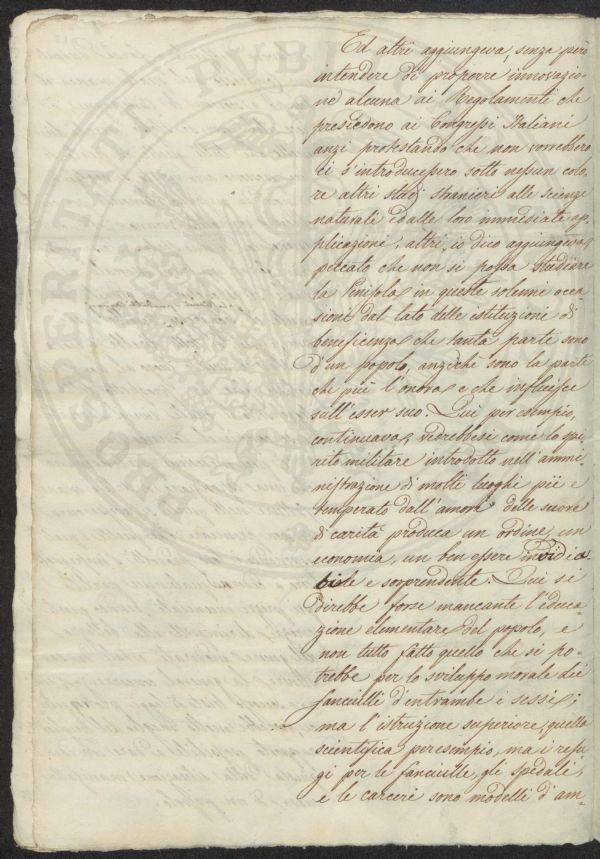 Ed altri aggiungeva, senza però
intendere di proporre innovazio-
ne alcuna ai Regolamenti che
presiedono ai Congressi Italiani
anzi protestando che non vorrebbero
ci s'introducessero sotto nessun colo-
re altri studj stranieri alle scienze
naturali e dalle loro immediate ap-
plicazioni; altri, io dico aggiungeva,
peccato che non si possa studiare
la Penisola in queste solenni occa-
sioni dal lato delle istituzioni di
beneficenza che tanta parte sono
d'un popolo, anzichè sono la parte
che più l'onora e che influisce
sull'esser suo. Qui per esempio,
continuava, vedrebbesi come lo spi-
rito militare introdotto nell'ammi-
nistrazione di molti luoghi pii e
temperato dall'amore delle suore
di carità produca un ordine, un
economia, un ben essere invidia-
bile e sorprendente. Qui si
direbbe forse mancante l'educa-
zione elementare del popolo, e
non tutto fatto quello che si po-
trebbe per lo sviluppo morale dei
fanciulli d'entrambe i sessi;
ma l'istruzione superiore, quella
scientifica per esempio, ma i refu-
gi per le fanciulle, gli spedali,
e le carceri sono modelli d'am-
PROSPERITATI PUBLICAE